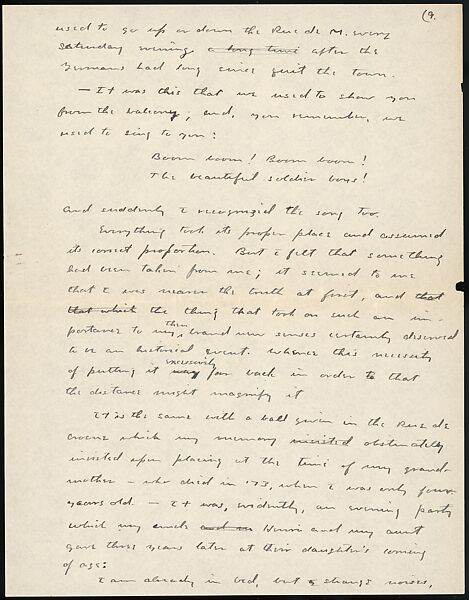 (9.
used to go up or down the Rue de M. every
Saturday evening a long time after the
Germans had long since quit the town.
— It was this that we used to show you
from the balcony; and, you remember, we
used to sing to you:
Boom boom! Boom boom!
The beautiful soldier boys!
And suddenly I recognized the song too.
Everything took its proper place and assumed
its correct proportion. But I felt that something
had been taken from me; it seemed to me
that I was nearer the truth at first, and that
that which the thing that took on such an im-
portance to my then brand new senses certainly deserved
to be an historical event. Whence this necessity
of putting it way excessively far back in order to that
the distance might magnify it
It is the same with a ball given in the Rue de
Crosne which my memory insisted obstinately
insisted upon placing at the time of my grand-
mother — who died in '73, when I was only four
years old. — It was, evidently, an evening party
which my uncle and m Henri and my aunt
gave three years later at their daughter's coming
of age:
I am already in bed, but a strange noises,